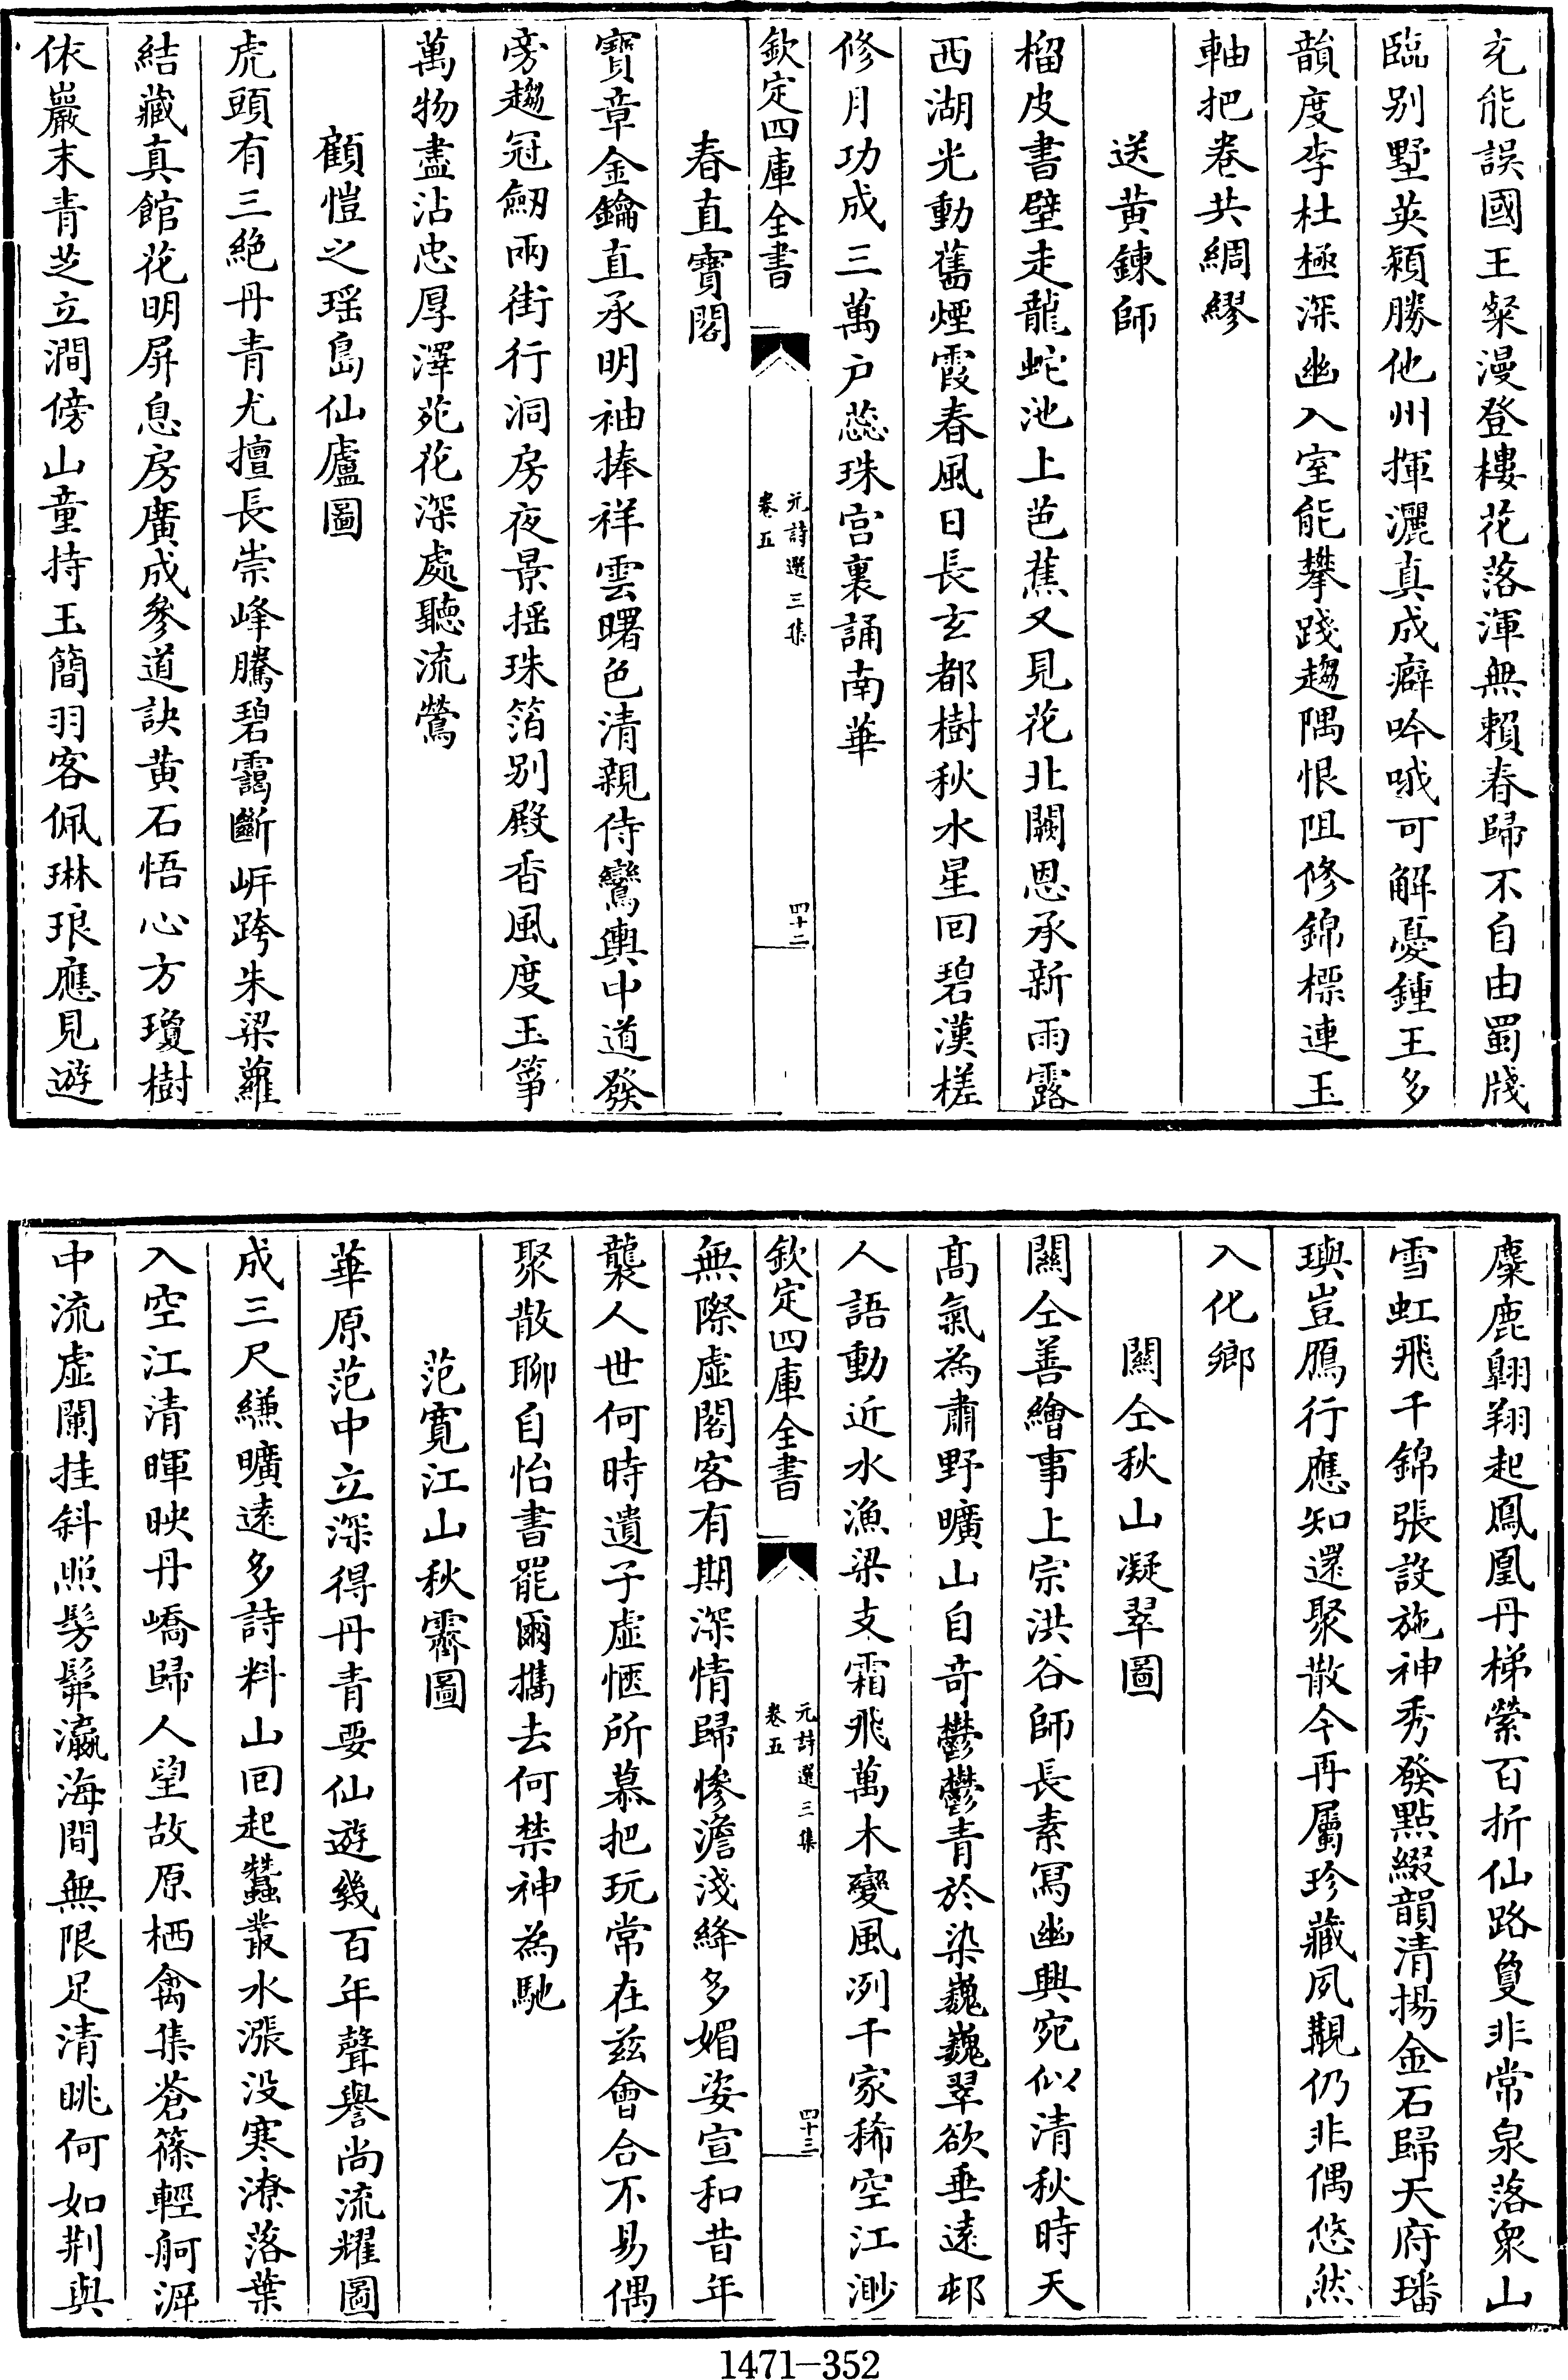 充能誤國王粲漫登樓花落渾無賴春歸不自由蜀牋
臨别墅英潁勝他州揮灑真成癖吟哦可解憂鍾王多
韻度李杜極深幽入室能攀踐趨隅恨阻修錦標連玉
軸把卷共綢繆
送黄鍊師
榴皮書壁走龍蛇池上芭蕉又見花北闕恩承新雨露
西湖光動舊煙霞春風日長玄都樹秋水星回碧漢槎
修月功成三萬户蕊珠宫裏誦南華
欽定四庫全書
元詩選三集
卷五
四十二
春直寶閣
寶章金鑰直承明袖捧祥雲曙色清親侍鸞輿中道發
旁趨冠劒兩街行洞房夜景揺珠箔别殿香風度玉箏
萬物盡沾忠厚澤苑花深處聽流鶯
顧愷之瑶島仙廬圖
虎頭有三絶丹青尤擅長崇峰騰碧靄斷岍跨朱梁蘿
結藏真館花明屏息房廣成參道訣黄石悟心方瓊樹
依巖末青芝立澗傍山童持玉簡羽客佩琳琅應見遊
麋鹿翺翔起鳳凰丹梯縈百折仙路夐非常泉落衆山
雪虹飛千錦張設施神秀發點綴韻清揚金石歸天府璠
璵豈鴈行應知還聚散今再屬珍藏夙覯仍非偶悠然
入化鄉
關仝秋山凝翠圖
關仝善繪事上宗洪谷師長素冩幽興宛似清秋時天
髙氣為肅野曠山自竒鬱鬱青於染巍巍翠欲垂遠邨
人語動近水漁梁支霜飛萬木變風冽千家稀空江渺
欽定四庫全書
元詩選三集
卷五
四十三
無際虛閣客有期深情歸慘澹淺絳多媚姿宣和昔年
襲人世何時遺子虛愜所慕把玩常在兹會合不易偶
聚散聊自怡書罷爾攜去何禁神為馳
范寛江山秋霽圖
華原范中立深得丹青要仙遊幾百年聲譽尚流耀圖
成三尺縑曠遠多詩料山回起蠶叢水漲没寒潦落葉
入空江清暉映丹嶠歸人望故原栖禽集蒼篠輕舸㵗
中流虛闌挂斜照髣髴瀛海間無限足清眺何如荆與
1471–352